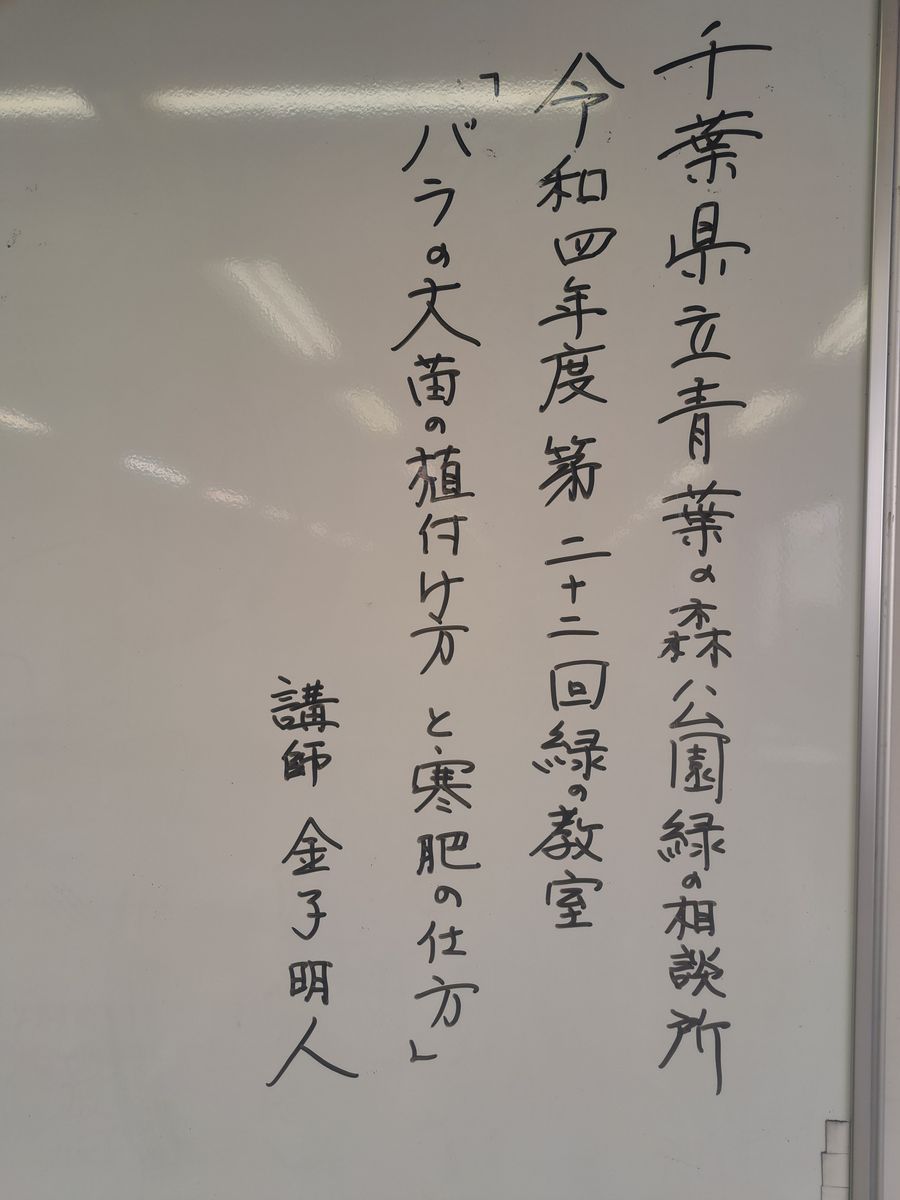 千葉県立青葉の森公園緑の相談所
令和四年度 第二十二回緑の教室
「バラの大苗の植付け方と寒肥の仕方」
講師 金子明人